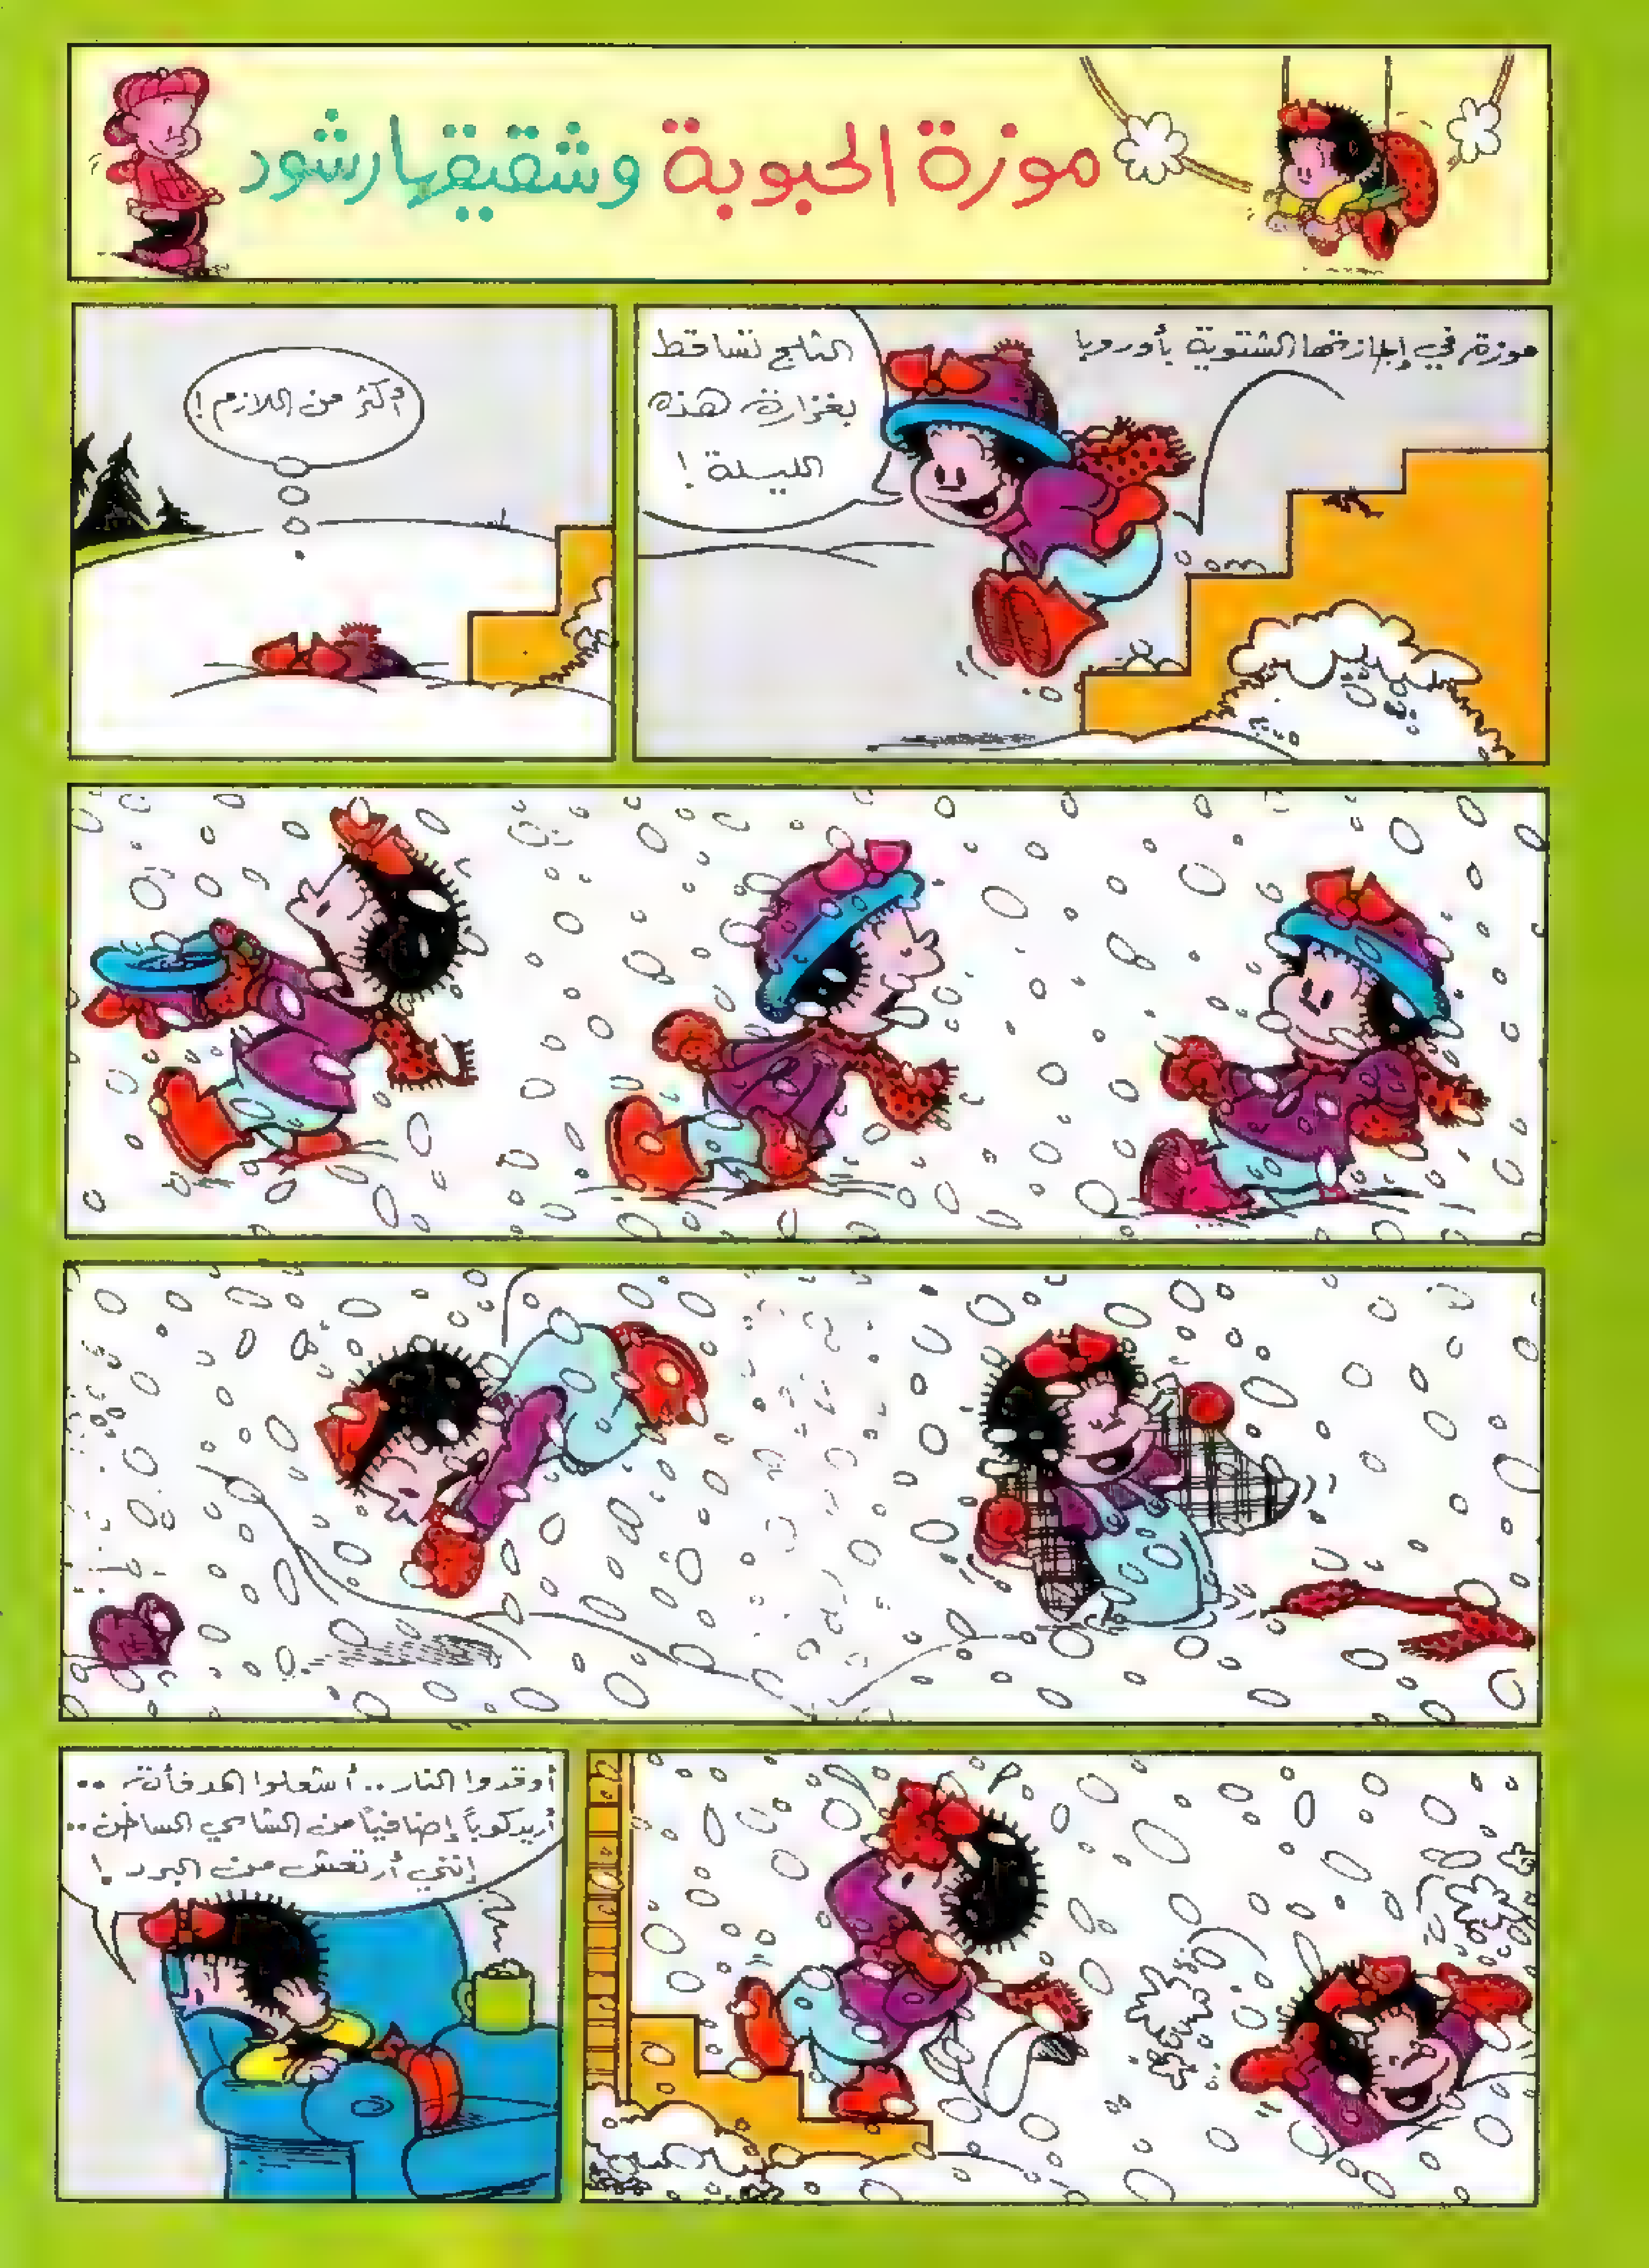 موزة الحبوبة وشقيقها رشود
موزة في إجازتها الشتوية بأوروبا
الثلج تساقط
بغزارة هذه
الليلة !
أكثر من اللازم !
أوقدوا النار .. أشعلوا المدفأة ..
أريد كوباً إضافياً من الشاي الساخن ..
إنني أرتعش من البرد !